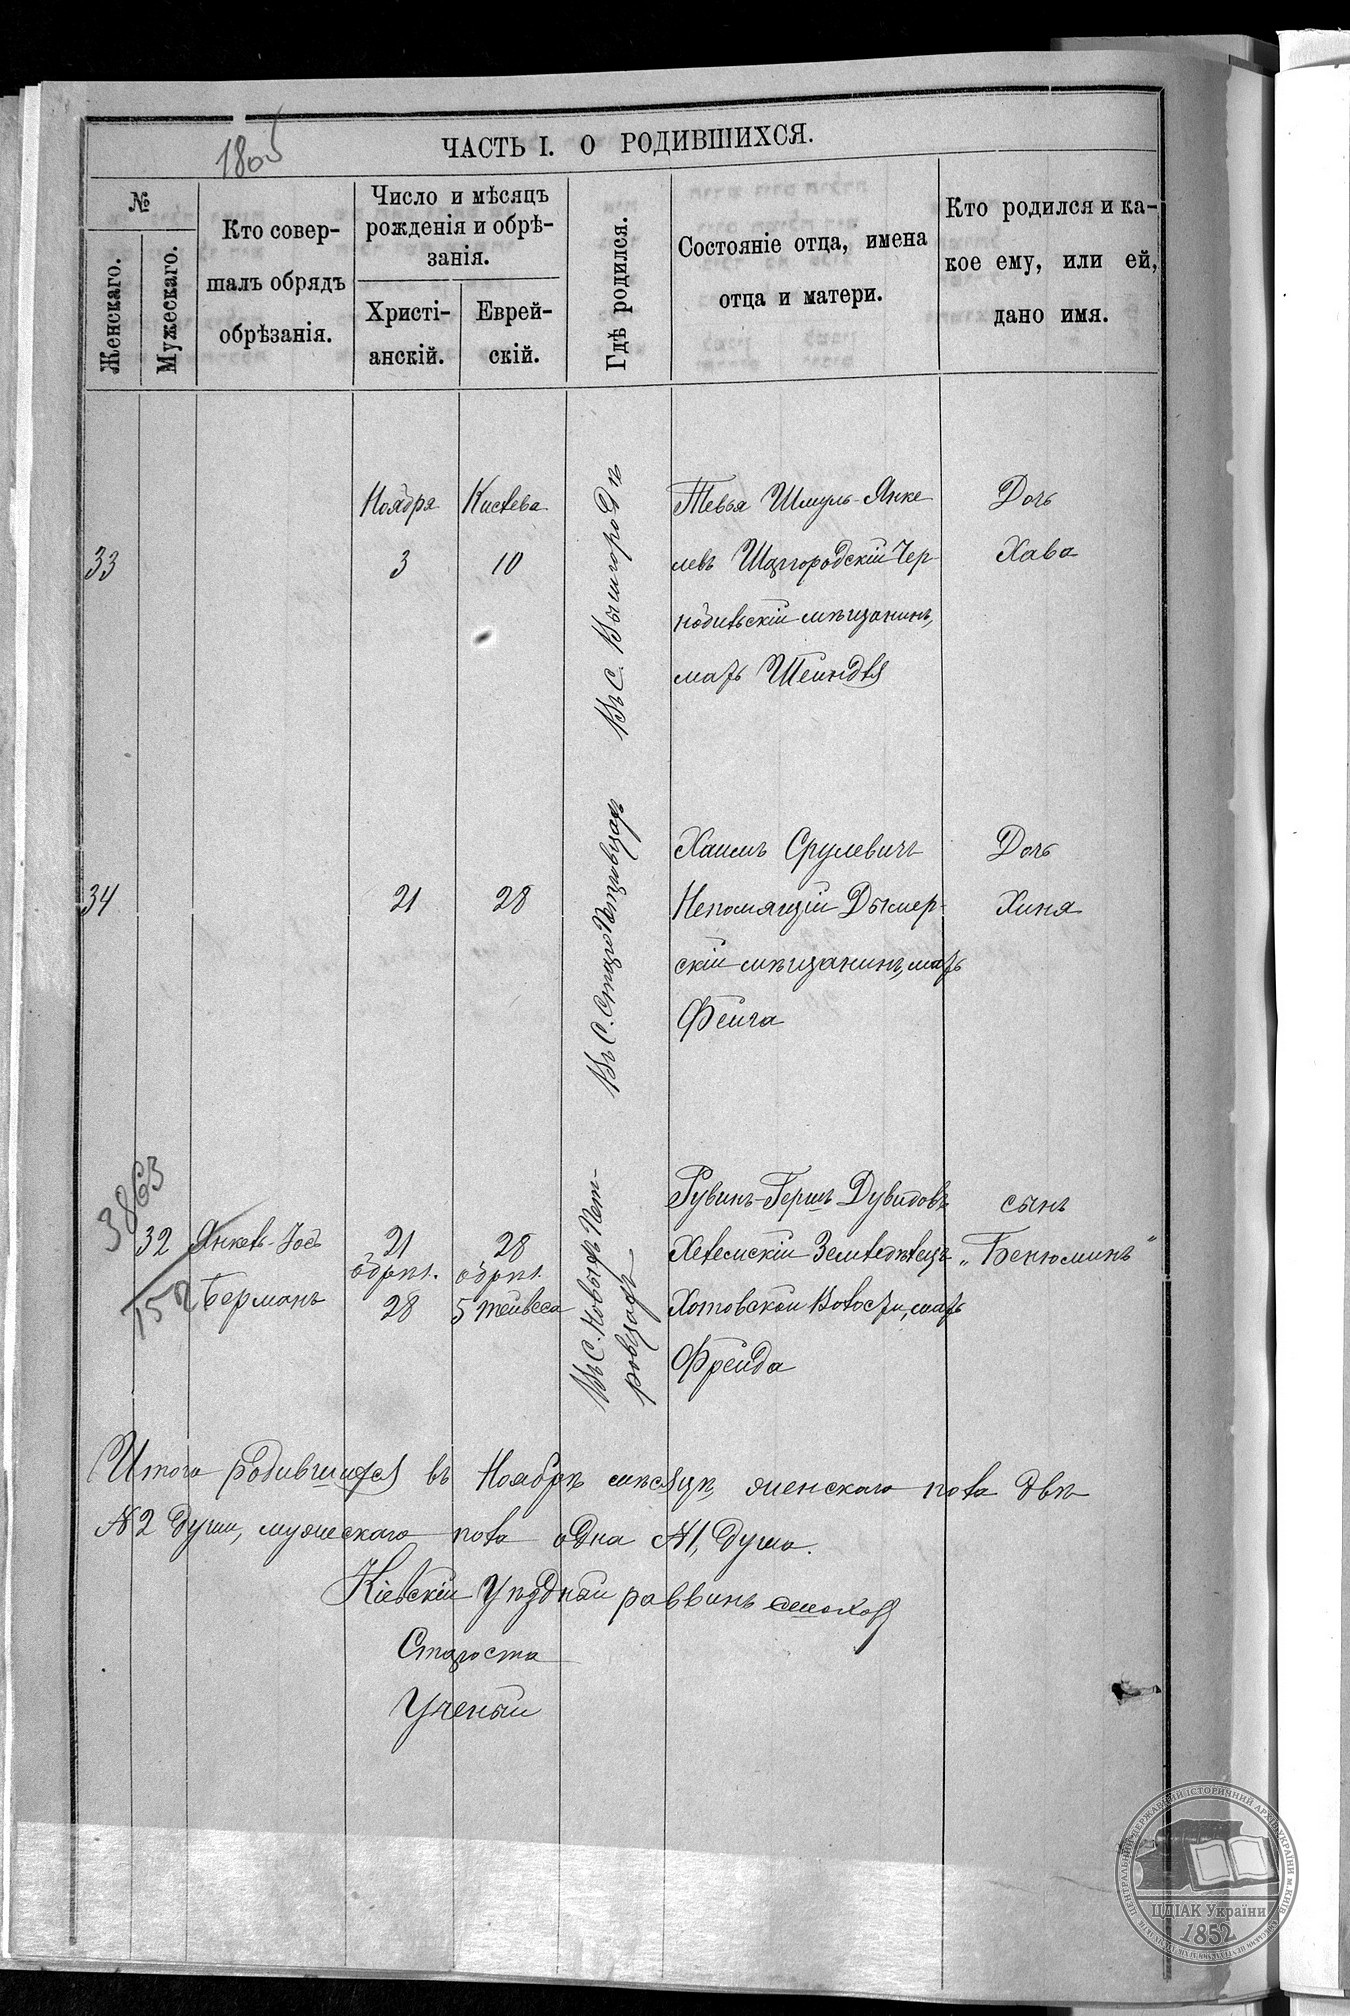 1805
ЧАСТЬ I. О РОДИВШИХСЯ.
№
Женскаго.
Мужескаго.
Кто совер-
шалъ обрядъ
обрѣзанія.
Число и мѣсяцъ
рожденія и обрѣ-
занія.
Христі-
анскій.
Еврей-
скій.
Гдѣ родился.
Состояніе отца, имена
отца и матери.
Кто родился и ка-
кое ему, или ей,
дано имя.
33
Ноября
3
Кислева
10
Въ С. Вышгородѣ
Тевья Шмуль-Янке
левъ Шаргородскій Чер-
нобильскій мѣщанинъ,
мать Шейндля
Дочь
Хава
34
21
28
В С. Старо Петровцахъ
Хаимъ Срулевичъ
Непомящій Дымер-
скій мѣщанинъ, мать
Фейга
Дочь
Хиня
3863
152
32
Янкель-Іось
Берманъ
21
обрѣз.
28
28
обрѣз.
5 Тейвеса
Въ С. Новыхъ Пет-
ровцахъ
Рувинъ-Гершъ Дувидовъ
Хелемскій Земледѣлецъ
Хотовской Волости, мать
Фрейда
сынъ
„Бенюминъ"
Итого родившихся въ Ноябрѣ мѣсяцѣ, женскаго пола двѣ
№2 души, мужескаго пола одна №1, душа.
Кіевскій Уѣздный раввинъ
Староста
Ученый
ЦЕНТРАЛЬНИЙ ДЕРЖАВНИЙ ІСТОРИЧНИЙ АРХІВ УКРАЇНИ М. КИЇВ
ЦДІАК України
1852